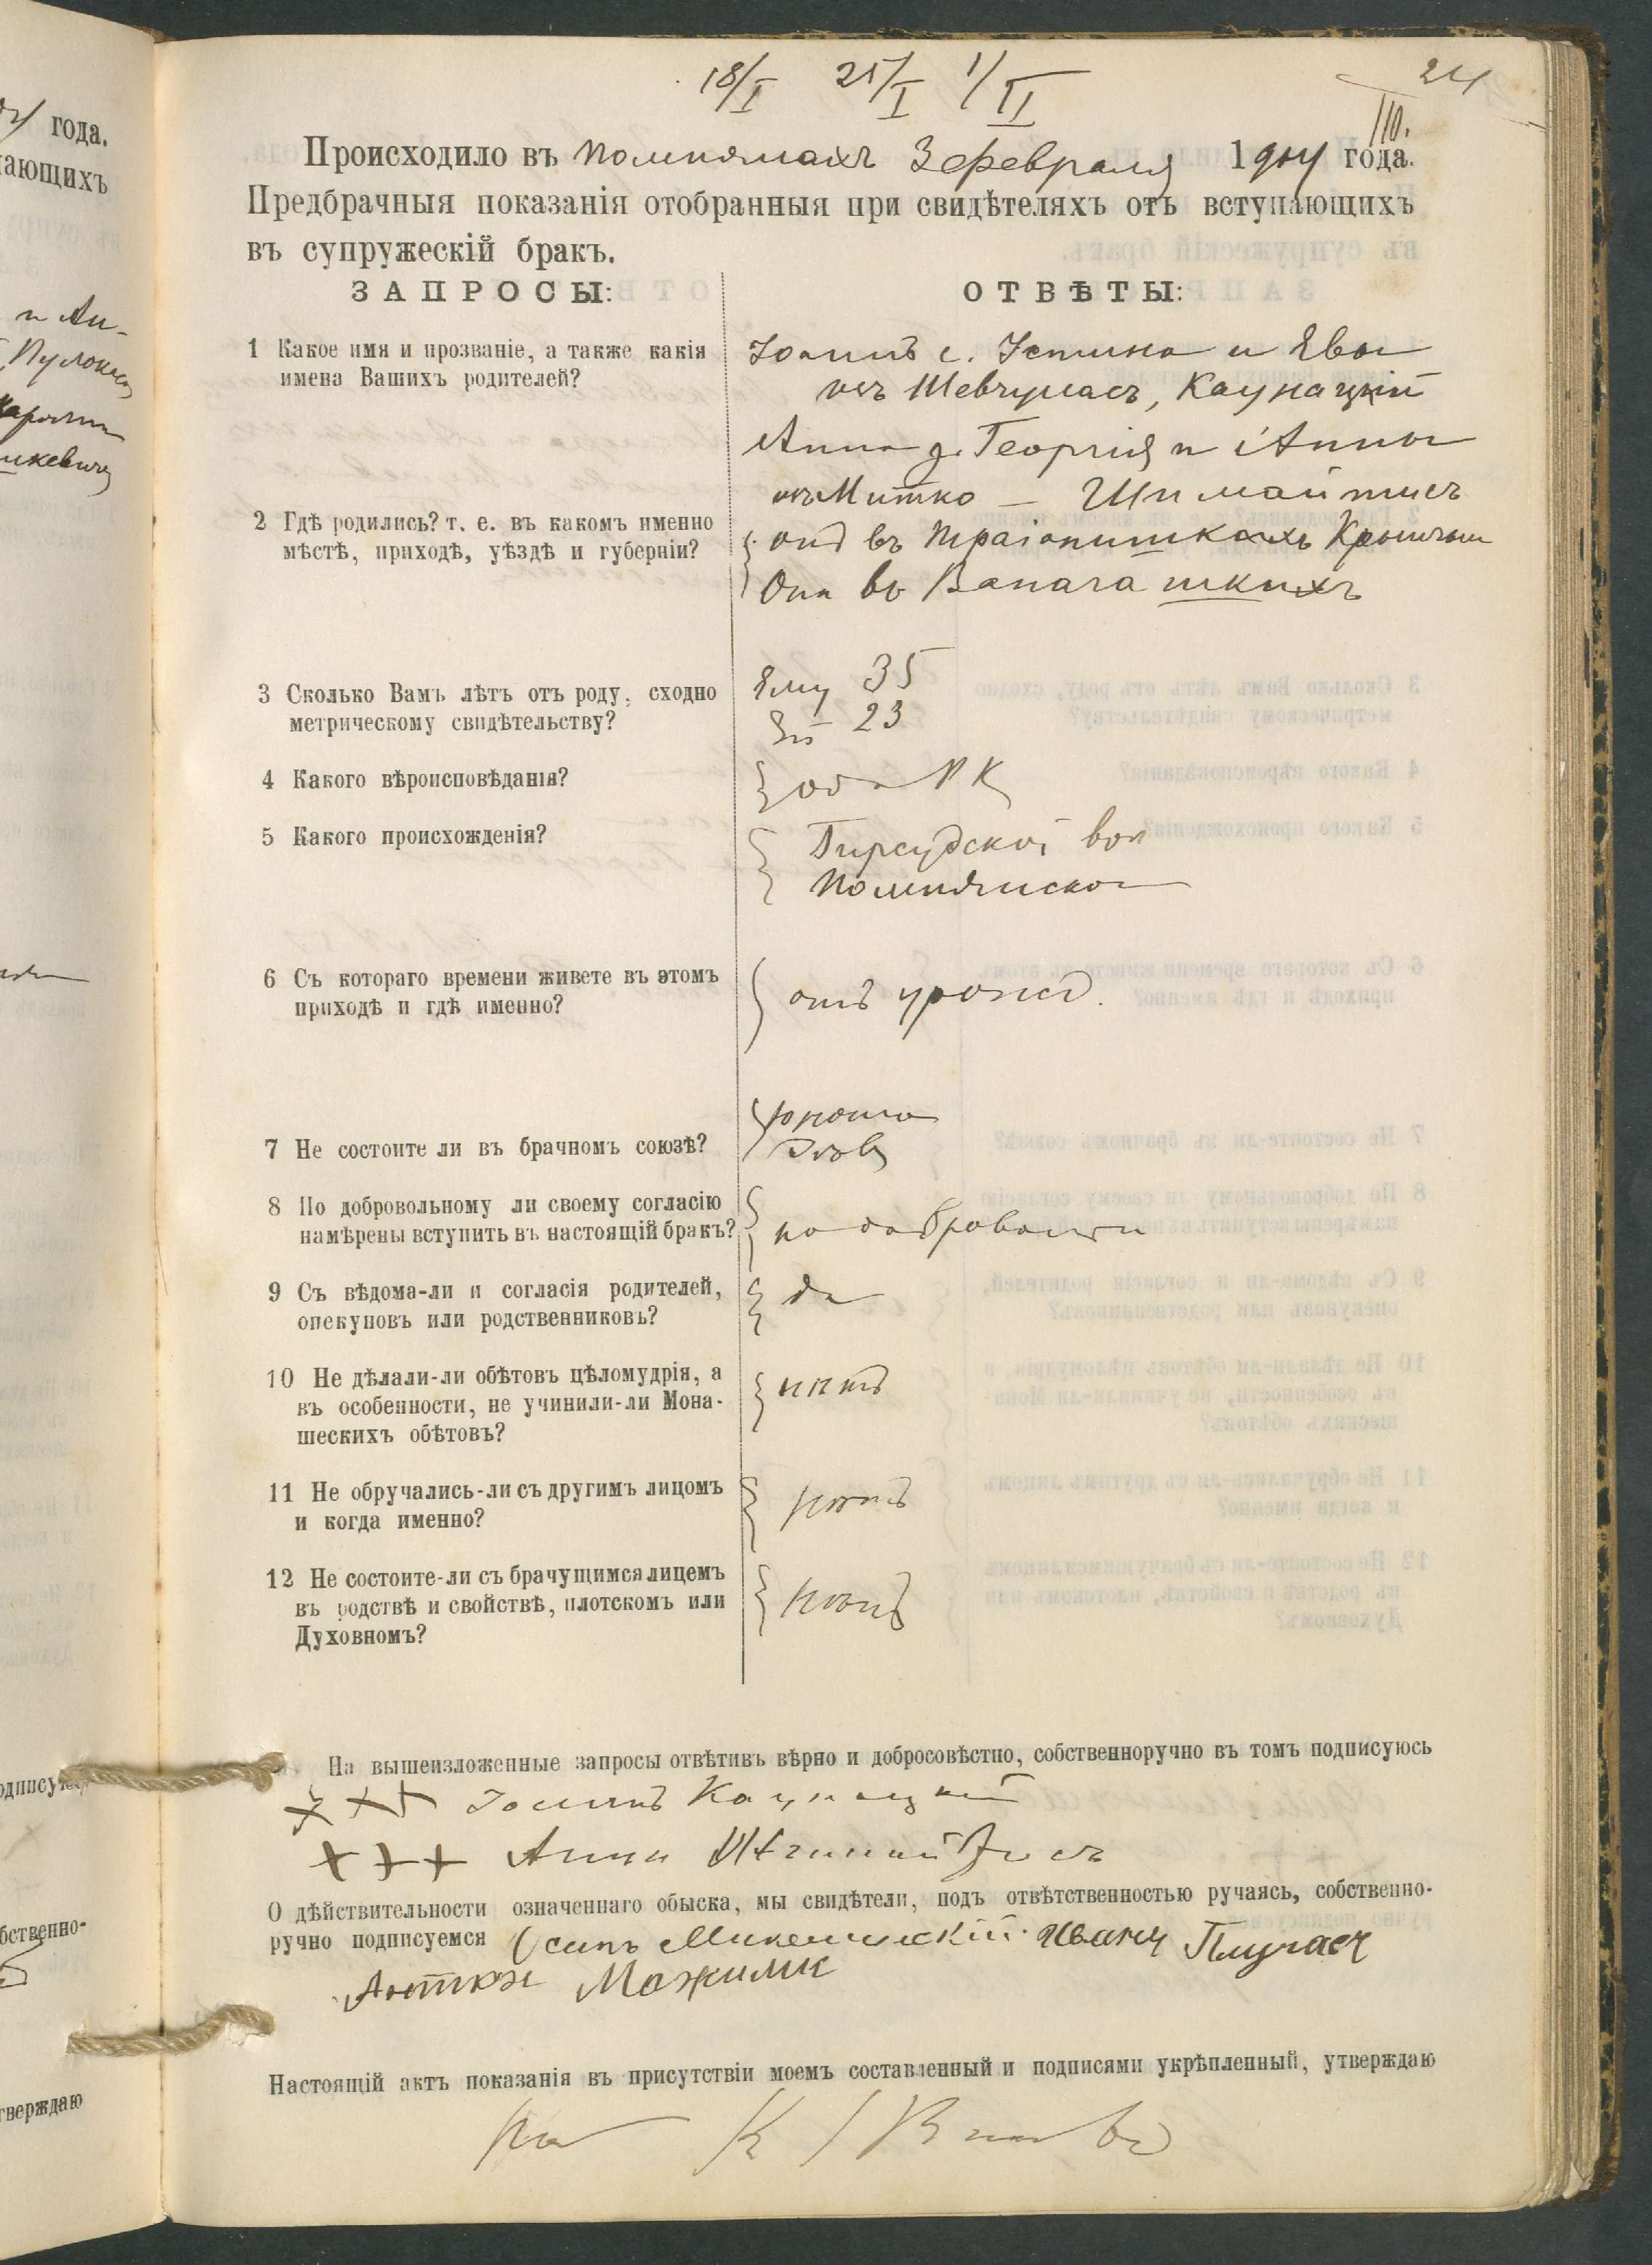 года.
ающихъ
и Ан-
18/I 25/I 1/II
24
Происходило въ Помпянахъ 3 февраля 1904 года.
Предбрачныя показанія отобранныя при свидѣтеляхъ отъ вступающихъ
въ супружескій бракъ.
ЗАПРОСЫ:
ОТВѢТЫ:
1 Какое имя и прозваніе, а также какія
имена Вашихъ родителей?
Іоаннъ с. Устина и Евы
изъ Шевчуласъ, Каунацкій
Анна д. Георгія и Анны
изъ Митко —
2 Гдѣ родились? т. е. въ какомъ именно
мѣстѣ, приходѣ, уѣздѣ и губерніи?
онъ въ
Она въ
3 Сколько Вамъ лѣтъ отъ роду, сходно
метрическому свидѣтельству?
Ему 35
Ей 23
4 Какого вѣроисповѣданія?
оба РК
5 Какого происхожденія?
Гирсудской вол
Помпянской
6 Съ котораго времени живете въ этомъ
приходѣ и гдѣ именно?
отъ урожд.
7 Не состоите ли въ брачномъ союзѣ?
юноша
дѣв
8 По добровольному ли своему согласію
намѣрены вступить въ настоящій бракъ?
по добровольн
9 Съ вѣдома-ли и согласія родителей,
опекуновъ или родственниковъ?
да
10 Не дѣлали-ли обѣтовъ цѣломудрія, а
въ особенности, не учинили-ли Мона-
шескихъ обѣтовъ?
нѣтъ
11 Не обручались-ли съ другимъ лицомъ
и когда именно?
нѣтъ
12 Не состоите-ли съ брачущимся лицемъ
въ родствѣ и свойствѣ, плотскомъ или
Духовномъ?
нѣтъ
На вышеизложенные запросы отвѣтивъ вѣрно и добросовѣстно, собственноручно въ томъ подписуюсь
+++ Іоаннъ Каунацкій
+++ Анна
О дѣйствительности означеннаго обыска, мы свидѣтели, подъ отвѣтственностью ручаясь, собственно-
ручно подписуемся Осипъ
Можимис
Настоящій актъ показанія въ присутствіи моемъ составленный и подписями укрѣпленный, утверждаю